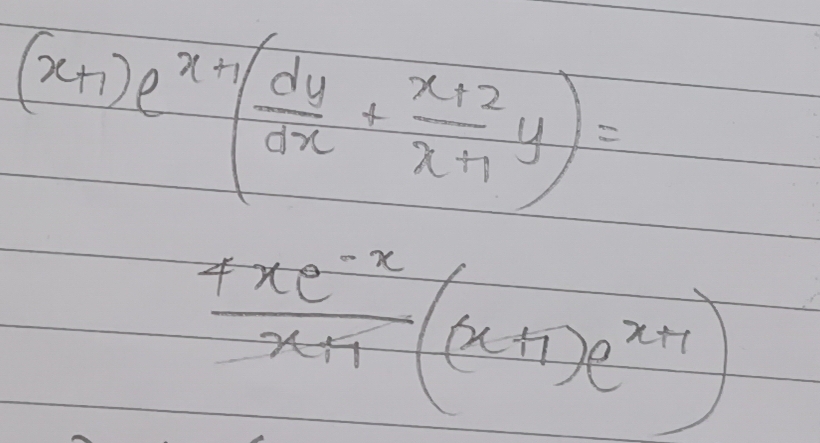 (x+1)e^{x+1}(dy/dx + (x+2)/(x+1) y) =
4xe^{-x}/(x+1) ((x+1)e^{x+1})